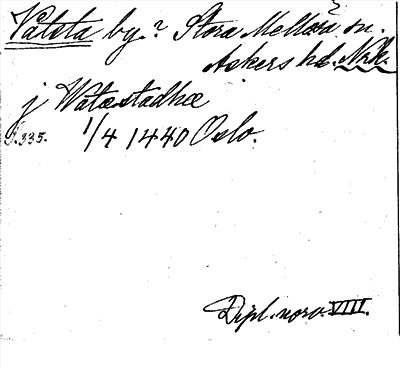 Våtsta by? Stora Mellösa sn.
?
Askers hd. Nrk.
j Watæstadhæ
S. 335. 1/4 1440 Oslo.
Dipl. norv. VIII.